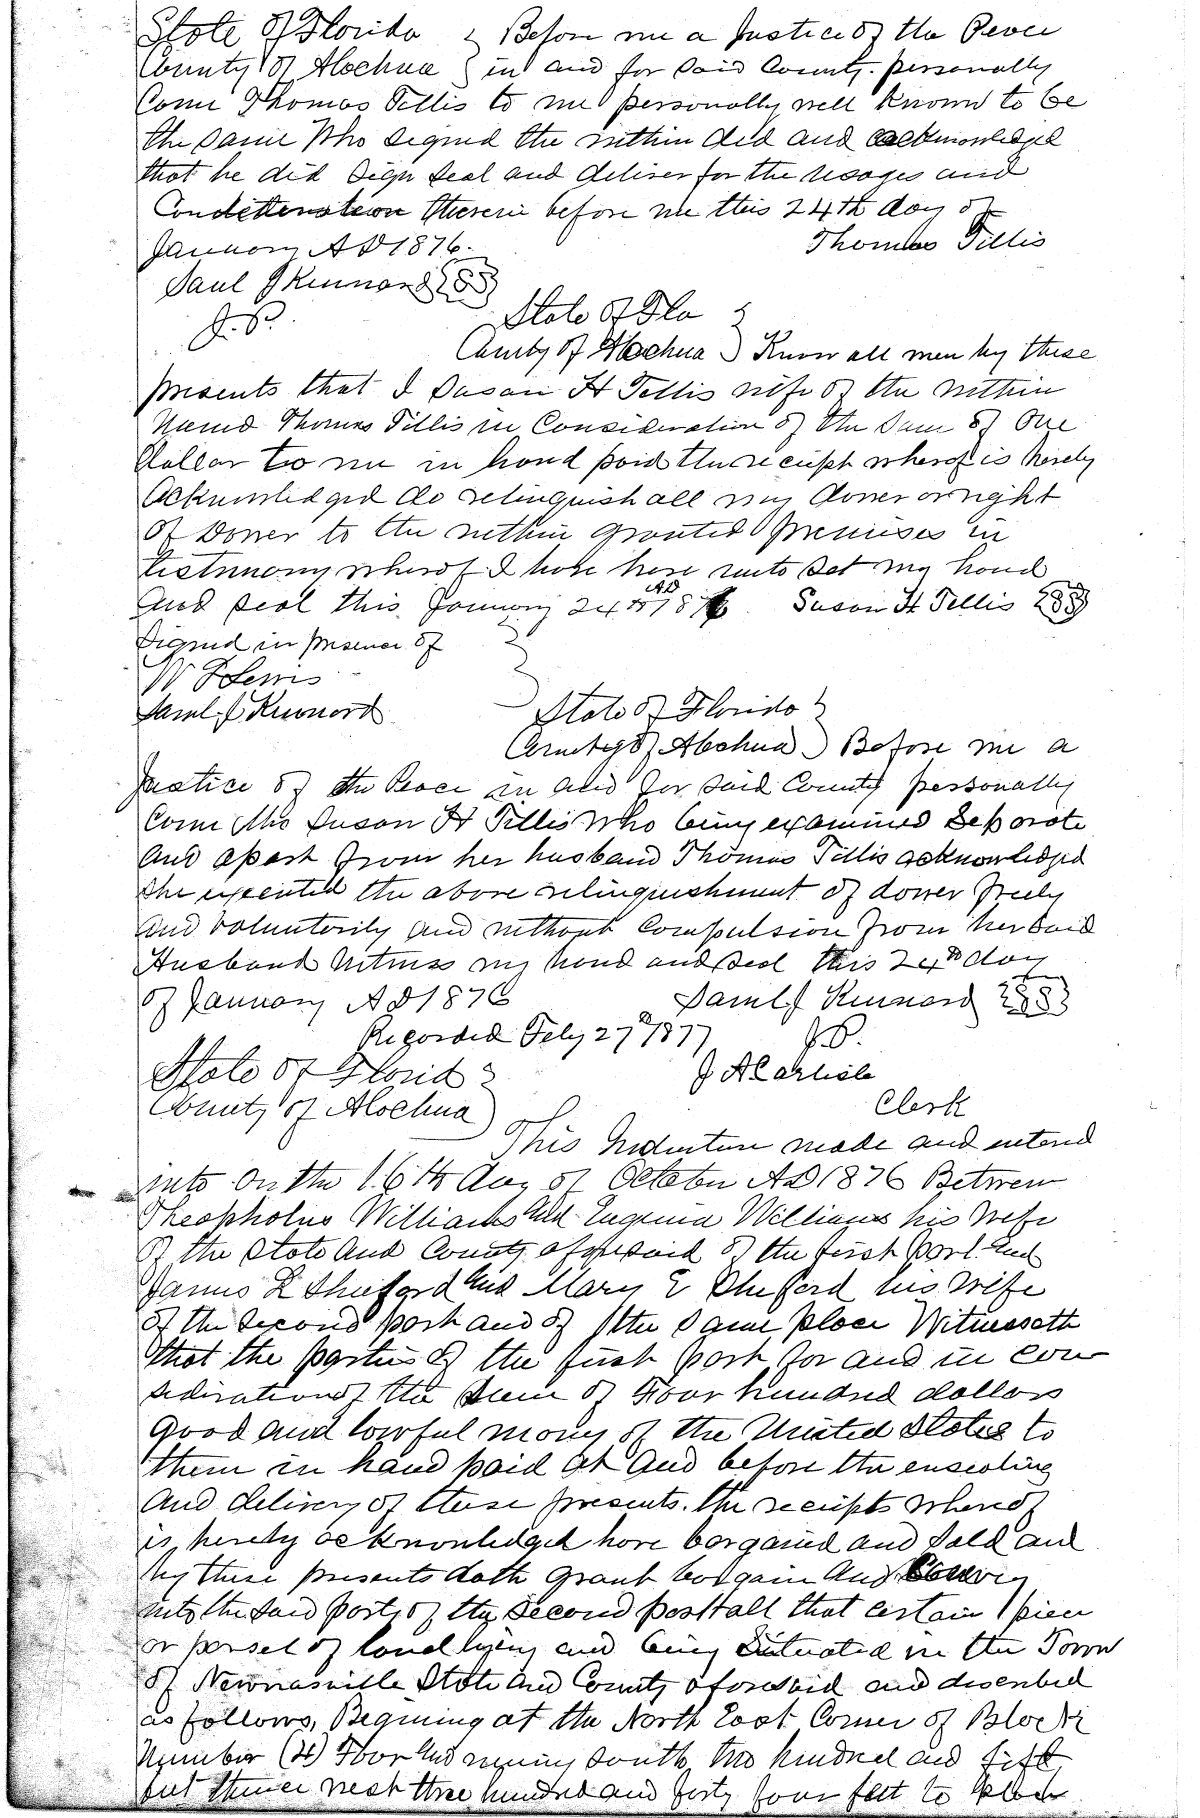 State of Florida } Before me a Justice of the Peace
County of Alachua } in and for said County personally
Come Thomas Tillis to me personally well known to be
the same who signed the within deed and acknowledged
that he did sign seal and deliver for the usages and
Consideration therein before me this 24th day of
January AD 1876. Thomas Tillis
Saml J Kennard {SS}
J.P.
State of Fla }
County of Alachua } Know all men by these
presents that I Susan H Tillis wife of the within
Named Thomas Tillis in Consideration of the Sum of One
dollar to me in hand paid the receipt whereof is hereby
acknowledged do relinquish all my dower or right
of Dower to the within granted premises in
testimony whereof I have here unto set my hand
and seal this January 24th AD 1876. Susan H Tillis {SS}
Signed in presence of }
W F Lewis
Saml J Kennard
State of Florida }
County of Alachua } Before me a
Justice of the Peace in and for said County personally
Come Mrs Susan H Tillis who being examined Seperate
and apart from her husband Thomas Tillis acknowledged
she executed the above relinquishment of dower freely
and voluntarily and without Compulsion from her said
Husband Witness my hand and seal this 24th day
of January AD 1876 Saml J Kennard {SS}
Recorded Feby 27th 1877 J.P.
State of Florida } J A Carlisle
County of Alachua } Clerk
This Indenture made and entered
into on the 16th day of October AD 1876 Between
Theopholus Williams and Eugenia Williams his wife
of the State and County aforesaid of the first part and
James L Shuford and Mary E Shuford his wife
of the second part and of the same place Witnesseth
that the parties of the first part for and in con
sideration of the sum of Four hundred dollars
good and lawful mony of the United States to
them in hand paid at and before the ensealing
and delivery of these presents. the receipts whereof
is hereby acknowledged have bargained and sold and
by these presents doth grant bargain and Convey
unto the said party of the second part all that certain piece
or parsel of land lying and being situated in the Town
of Newnansville State and County aforesaid and described
as follows, Begining at the North East Corner of Block
Number (4) Four and runing south two hundred and fifty
feet thence west three hundred and forty four feet to